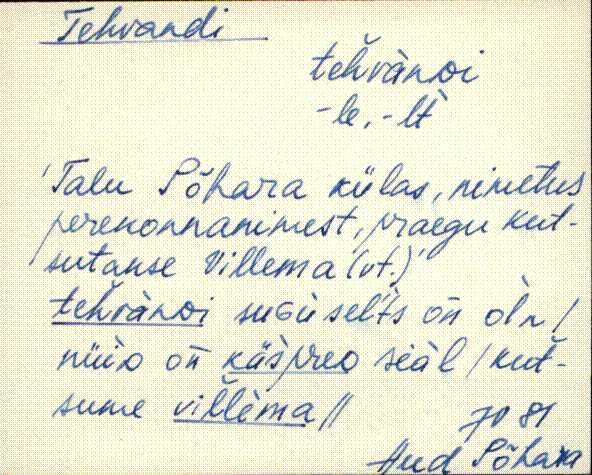 Tehvandi
tehvàndi
-le, -lt
'Talu Sõhara külas, nimetus
perekonnanimest, praegu kut-
sutakse Villema (vt.)'
tehvàndi suGù selts oñ
nüid oñ seäl / kut-
sume villèma //
Aud Sõhara